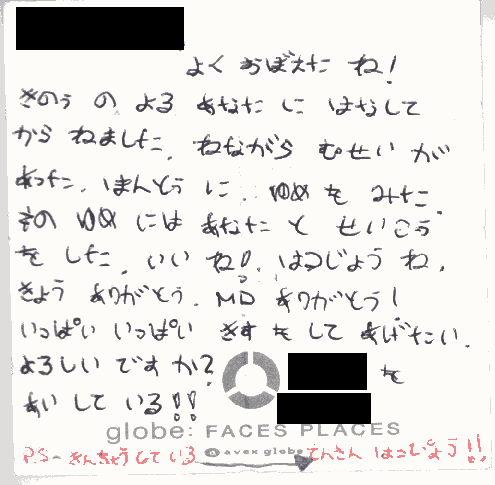 よく おぼえた ね!
きのう の よる あなた に はなして
から ねました. ねながら むせい が
あった. ほんとう に. ゆめ を みた.
その ゆめ には あなた と せいこう
を した. いい ね!. はるじょう ね.
きょう ありがとう. MD ありがとう!
いっぱい いっぱい きす を して あげたい.
よろしい です か?
を
あい して いる!!
globe: FACES PLACES
P.S- きんちょう している avex globe てんさん はつじょう!!